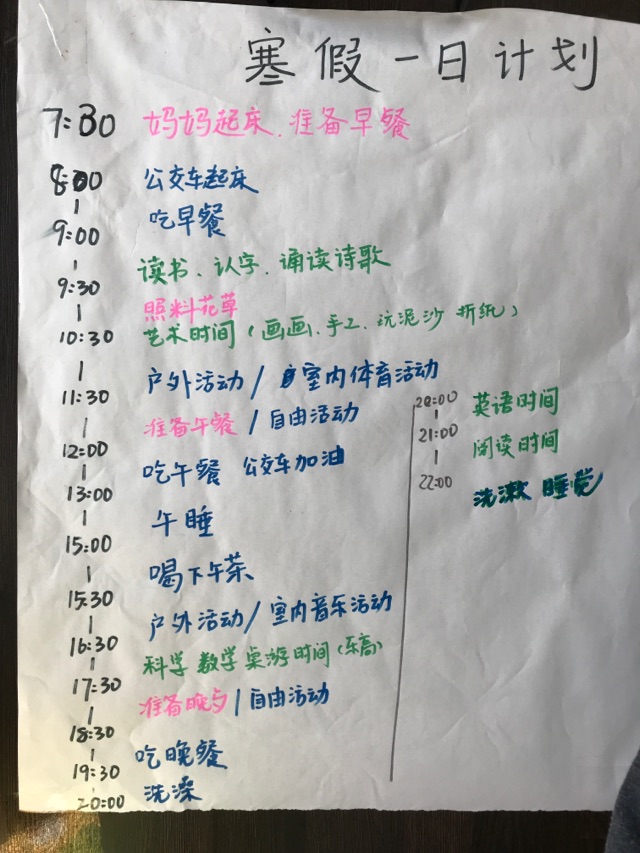 寒假一日计划
7:30 妈妈起床.准备早餐
8:00 公交车起床
| 吃早餐
9:00
| 读书、认字、诵读诗歌
9:30
| 照料花草
10:30 艺术时间(画画、手工、玩泥沙 折纸)
| 户外活动/室内体育活动
11:30
| 准备午餐/自由活动
12:00
| 吃午餐 公交车加油
13:00
| 午睡
15:00
| 喝下午茶
15:30
| 户外活动/室内音乐活动
16:30
| 科学 数学 桌游时间(乐高)
17:30
| 准备晚歺|自由活动
18:30
| 吃晚餐
19:30
| 洗澡
20:00
20:00
| 英语时间
21:00
| 阅读时间
22:00
洗漱 睡觉